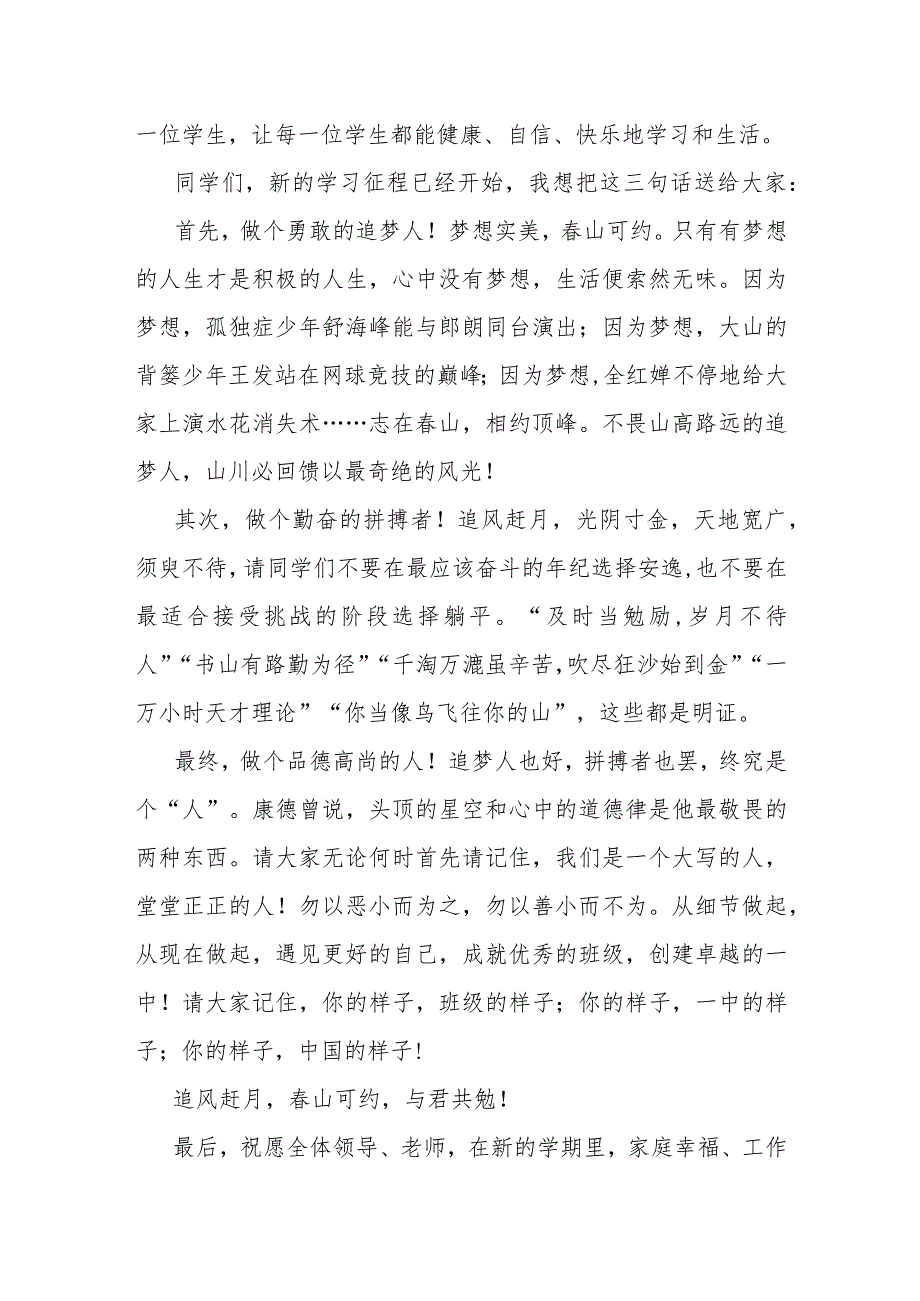 一位学生，让每一位学生都能健康、自信、快乐地学习和生活。
同学们，新的学习征程已经开始，我想把这三句话送给大家：
首先，做个勇敢的追梦人！梦想实美，春山可约。只有有梦想
的人生才是积极的人生，心中没有梦想，生活便索然无味。因为
梦想，孤独症少年舒海峰能与郎朗同台演出；因为梦想，大山的
背篓少年王发站在网球竞技的巅峰；因为梦想,全红婵不停地给大
家上演水花消失术……志在春山，相约顶峰。不畏山高路远的追
梦人，山川必回馈以最奇绝的风光！
其次，做个勤奋的拼搏者！追风赶月，光阴寸金，天地宽广，
须臾不待，请同学们不要在最应该奋斗的年纪选择安逸,也不要在
最适合接受挑战的阶段选择躺平。“及时当勉励,岁月不待
人”“书山有路勤为径”“千淘万漉虽辛苦,吹尽狂沙始到金”“一
万小时天才理论”“你当像鸟飞往你的山”，这些都是明证。
最终，做个品德高尚的人！追梦人也好，拼搏者也罢，终究是
个“人”。康德曾说，头顶的星空和心中的道德律是他最敬畏的
两种东西。请大家无论何时首先请记住，我们是一个大写的人，
堂堂正正的人！勿以恶小而为之，勿以善小而不为。从细节做起，
从现在做起，遇见更好的自己，成就优秀的班级，创建卓越的一
中！请大家记住，你的样子，班级的样子；你的样子，一中的样
子；你的样子，中国的样子!
追风赶月，春山可约，与君共勉！
最后，祝愿全体领导、老师，在新的学期里，家庭幸福、工作